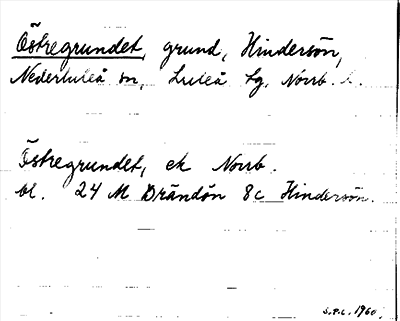 Östregrundet, grund, Hindersön,
Nederluleå sn, Luleå tg, Norrb. l.
Östregrundet, ek Norrb.
bl. 24 M Brändön 8c Hindersön.
S.P.L. 1960.